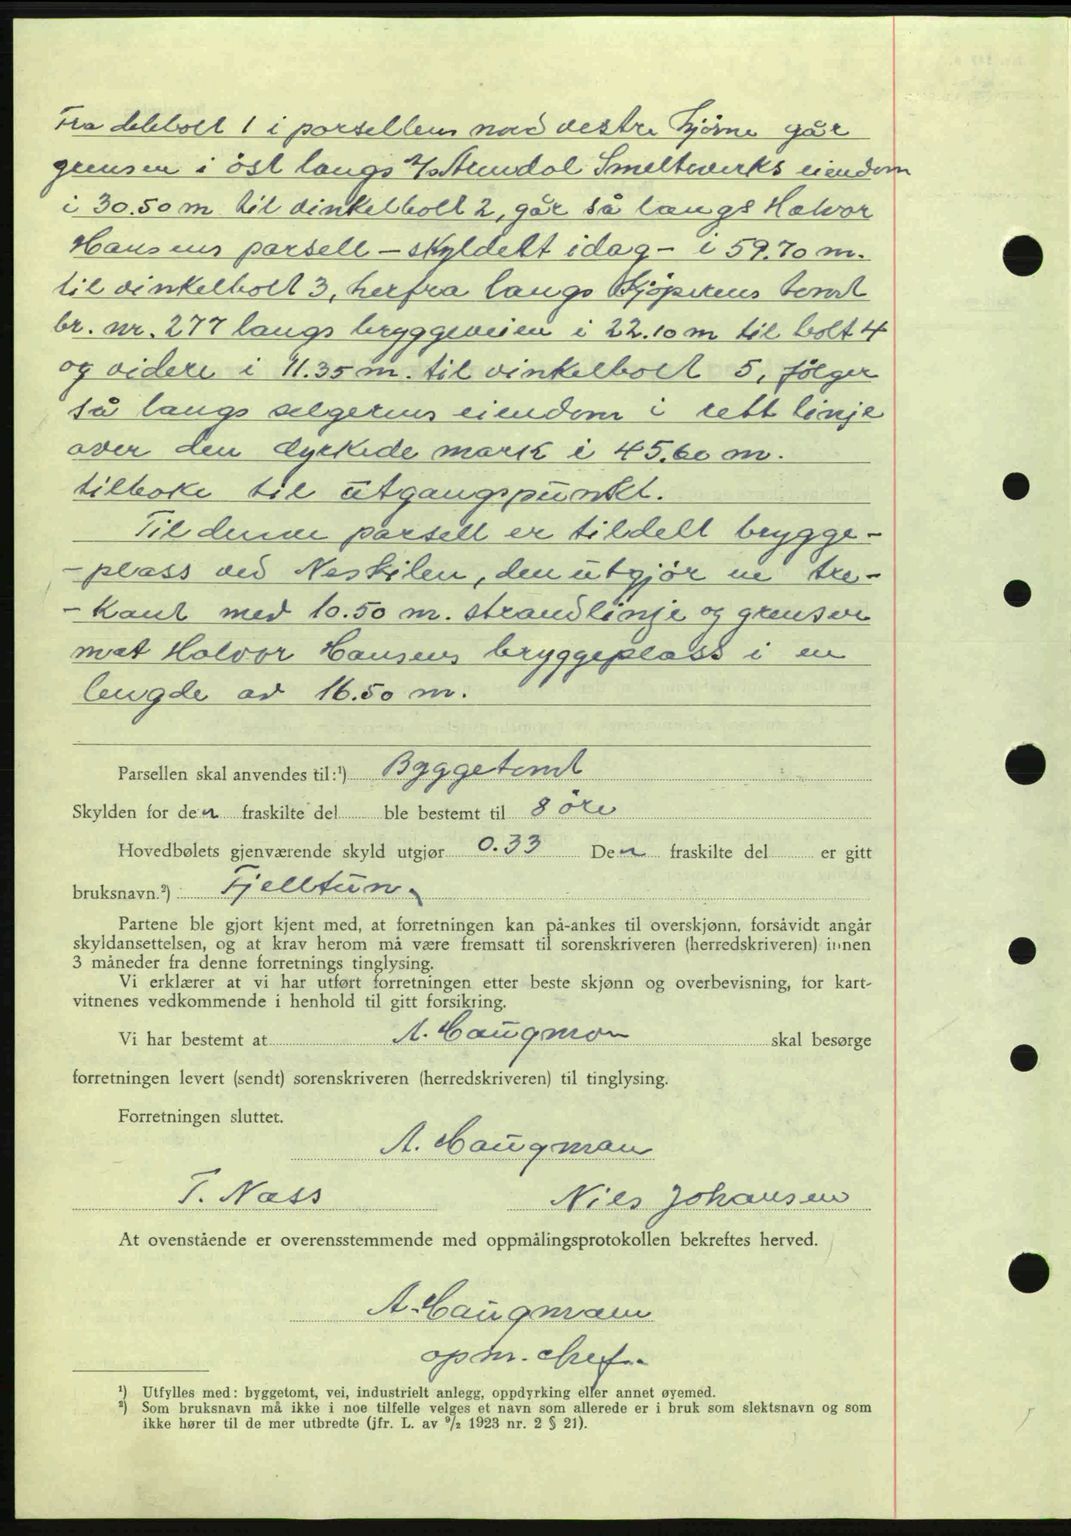 Fra delebolt 1 i parsellens nord vestre hjørne går
grensen i öst langs A/S Arendal Smelteverks eiendom
i 30.50 m til vinkelbolt 2, går så langs Halvor
Hansens parsell - skyldelt idag - i 59.70 m.
til vinkelbolt 3, herfra langs kjöperens tomt
br. nr. 277 langs bryggeveien i 22.10 m til bolt 4
og videre i 11.35 m. til vinkelbolt 5, fölger
så langs selgerens eiendom i rett linje
over den dyrkede mark i 45.60 m.
tilbake til utgangspunkt.
Til denne parsell er tildelt brygge-
- plass ved Neskilen, den utgjör en tre-
- kant med 10.50 m. strandlinje og grenser
mot Halvor Hansens bryggeplass i en
lengde av 16.50 m.
Parsellen skal anvendes til:¹) Byggetomt
Skylden for den fraskilte del ble bestemt til 8 öre
Hovedbølets gjenværende skyld utgjør 0.33 Den fraskilte del er gitt
bruksnavn.²) Fjelltun.
Partene ble gjort kjent med, at forretningen kan på-ankes til overskjønn, forsåvidt angår
skyldansettelsen, og at krav herom må være fremsatt til sorenskriveren (herredskriveren) innen
3 måneder fra denne forretnings tinglysing.
Vi erklærer at vi har utført forretningen etter beste skjønn og overbevisning, for kart-
vitnenes vedkommende i henhold til gitt forsikring.
Vi har bestemt at A. Haugman skal besørge
forretningen levert (sendt) sorenskriveren (herredskriveren) til tinglysing.
Forretningen sluttet.
A. Haugman
T. Næss Nils Johansen
At ovenstående er overensstemmende med oppmålingsprotokollen bekreftes herved.
A. Haugman
opm. chef.
¹) Utfylles med: byggetomt, vei, industrielt anlegg, oppdyrking eller annet øyemed.
²) Som bruksnavn må ikke i noe tilfelle velges et navn som allerede er i bruk som slektsnavn og som
ikke hører til de mer utbredte (jfr. L. av 9/2 1923 nr. 2 § 21).